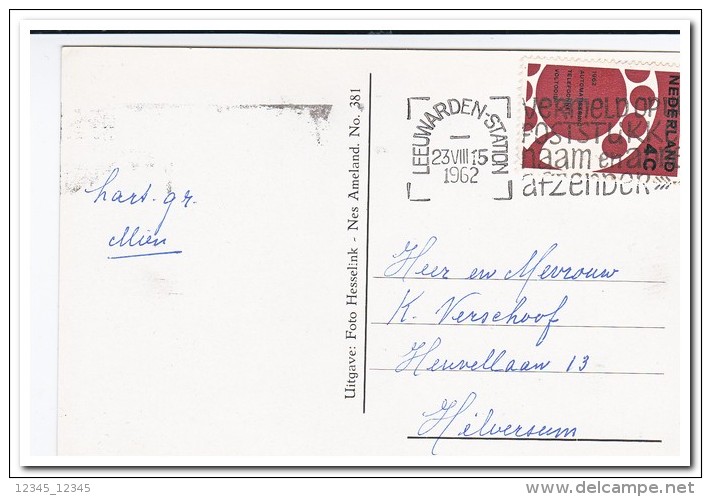 hart. gr.
Mien
Uitgave: Foto Hesselink - Nes Ameland. No. 381
LEEUWARDEN-STATION
23 VIII 15
1962
VERMELD OP
POSTSTUKK
naam en a
afzender
NEDERLAND
4C
1962
AUTOMATISERING
TELEFOONNET
VOLTOOID
Heer en Mevrouw
K. Verschoof
Heuvellaan 13
Hilversum
12345_12345
delcampe.net